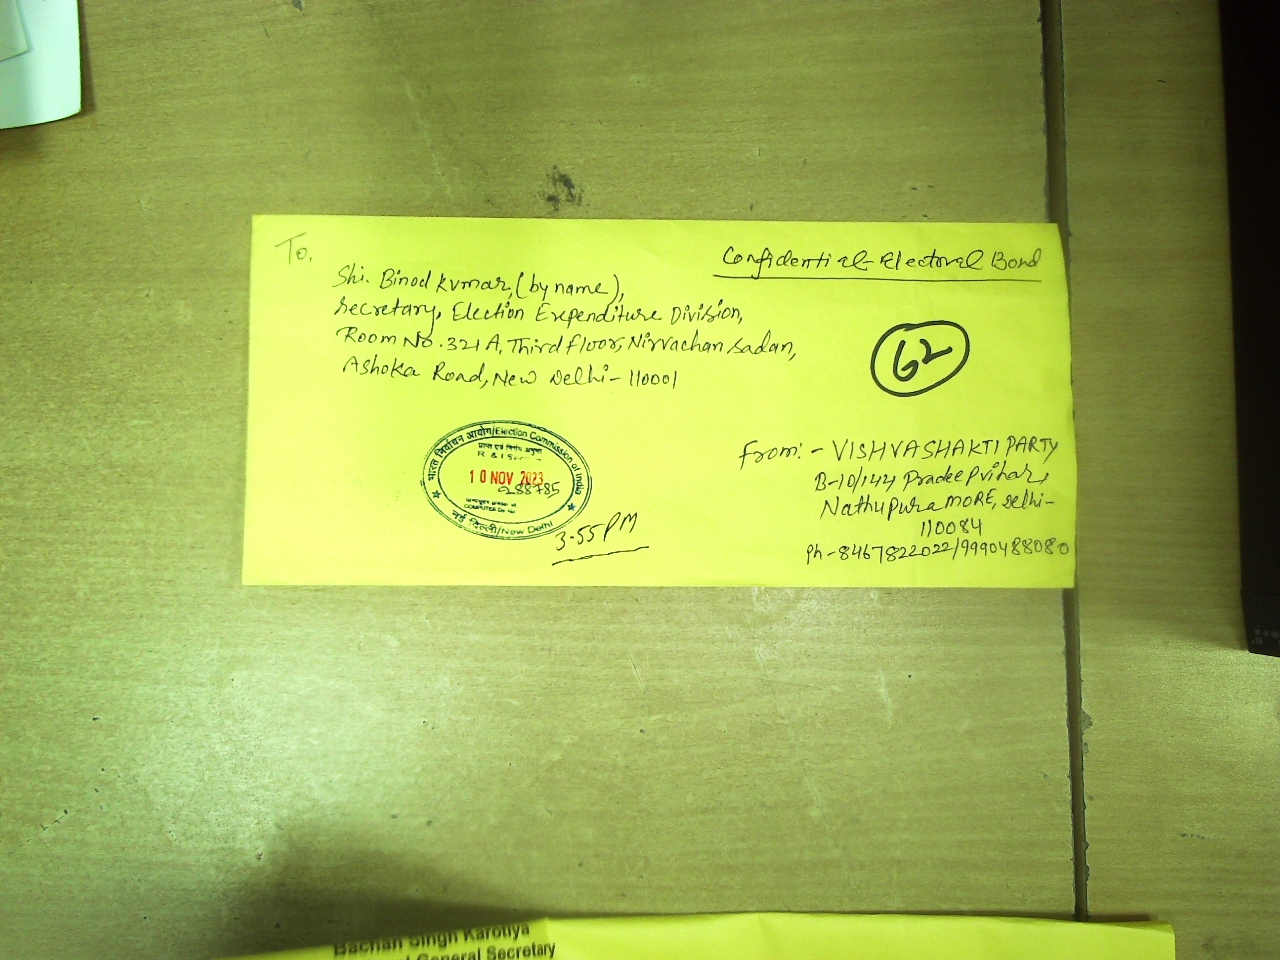 To,
Confidential-Electoral Bond
Shi. Binod Kumar, (by name),
Secretary, Election Expenditure Division,
Room No. 321 A, Third floor, Nirvachan Sadan,
Ashoka Road, New Delhi-110001
62
भारत निर्वाचन आयोग/Election Commission of India
R & I
10 NOV 2023
288785
नई दिल्ली/New Delhi
3-55PM
From:- VISHVASHAKTI PARTY
B-10/144 Pradeep vihar,
Nathupura MORE, Delhi-
110084
Ph-8467822022/9990488080
Bachan Singh Karotiya
General Secretary